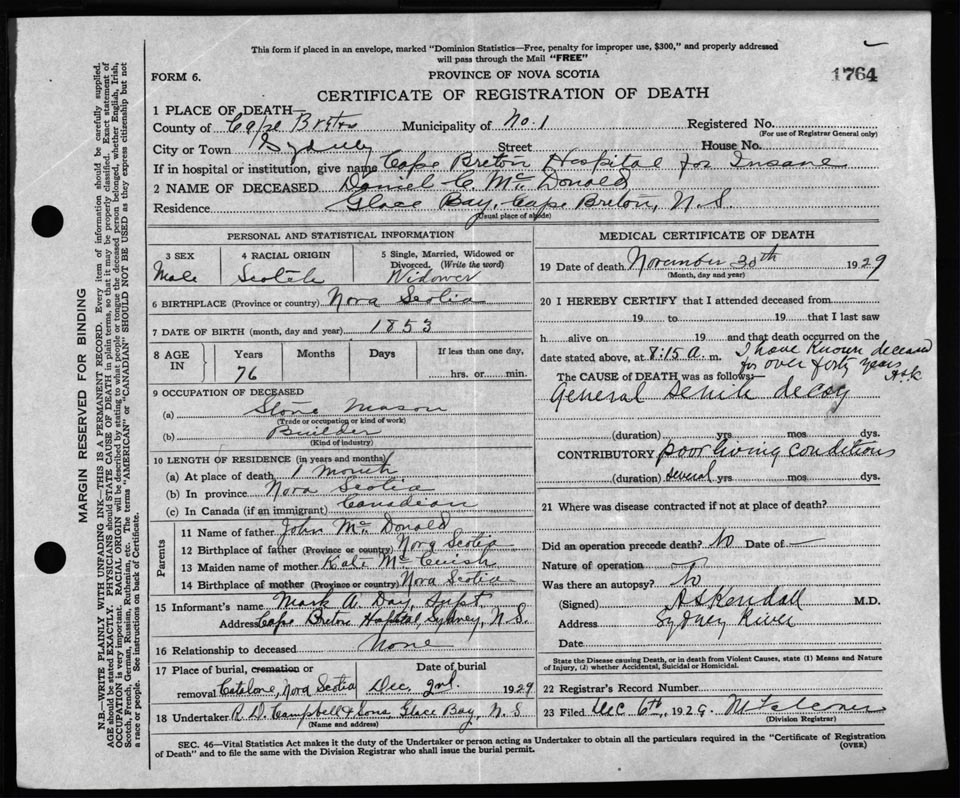 This form if placed in an envelope, marked "Dominion Statistics—Free, penalty for improper use, $300," and properly addressed
will pass through the Mail "FREE"
FORM 6.
PROVINCE OF NOVA SCOTIA
1764
CERTIFICATE OF REGISTRATION OF DEATH
1 PLACE OF DEATH—
County of Cape Breton Municipality of No. 1 Registered No.
(For use of Registrar General only)
City or Town Sydney Street House No.
If in hospital or institution, give name Cape Breton Hospital for Insane
2 NAME OF DECEASED Daniel C. McDonald
Residence Glace Bay, Cape Breton, N.S.
(Usual place of abode)
PERSONAL AND STATISTICAL INFORMATION
3 SEX 4 RACIAL ORIGIN 5 Single, Married, Widowed or
Divorced. (Write the word)
Male Scotch Widower
6 BIRTHPLACE (Province or country) Nova Scotia
7 DATE OF BIRTH (month, day and year) 1853
8 AGE IN Years Months Days If less than one day,
76 hrs. or min.
9 OCCUPATION OF DECEASED
(a) Stone Mason
(Trade or occupation or kind of work)
(b) Builder
(Kind of industry)
10 LENGTH OF RESIDENCE (in years and months)
(a) At place of death 1 Month
(b) In province Nova Scotia
(c) In Canada (if an immigrant) Canadian
Parents
11 Name of father John McDonald
12 Birthplace of father (Province or country) Nova Scotia
13 Maiden name of mother Kate McCuish
14 Birthplace of mother (Province or country) Nova Scotia
15 Informant's name Mark A. Day, Supt.
Address Cape Breton Hospital, Sydney, N.S.
16 Relationship to deceased None
17 Place of burial, cremation or Date of burial
removal Catalone, Nova Scotia Dec. 2nd. 1929
18 Undertaker R. D. Campbell & Sons, Glace Bay, N.S
(Name and address)
MEDICAL CERTIFICATE OF DEATH
19 Date of death November 30th 1929
(Month, day and year)
20 I HEREBY CERTIFY that I attended deceased from
19 to 19 that I last saw
h alive on 19 and that death occurred on the
date stated above, at 8:15 a. m. I have known deceased
for over forty years
ASK
The CAUSE OF DEATH was as follows:—
General senile decay
(duration) yrs mos dys.
CONTRIBUTORY poor living conditions
(duration) several yrs mos dys.
21 Where was disease contracted if not at place of death?
Did an operation precede death? No Date of —
Nature of operation
Was there an autopsy? No
(Signed) ASKendall M.D.
Address Sydney River
Date
State the Disease causing Death, or in death from Violent Causes, state (1) Means and Nature
of Injury, (2) whether Accidental, Suicidal or Homicidal.
22 Registrar's Record Number
23 Filed Dec 6th, 1929.
(Division Registrar)
SEC. 46—Vital Statistics Act makes it the duty of the Undertaker or person acting as Undertaker to obtain all the particulars required in the "Certificate of Registration
of Death" and to file the same with the Division Registrar who shall issue the burial permit.
(OVER)
MARGIN RESERVED FOR BINDING
N.B.—WRITE PLAINLY WITH UNFADING INK—THIS IS A PERMANENT RECORD. Every item of information should be carefully supplied.
AGE should be stated EXACTLY. PHYSICIANS should STATE CAUSE OF DEATH in plain terms, so that it may be properly classified. Exact statement of
OCCUPATION is very important. RACIAL ORIGIN will be described by stating to what people or tongue the deceased person belonged, whether English, Irish,
Scotch, French, German, Russian, Ruthenian, etc. The terms "AMERICAN" or "CANADIAN" SHOULD NOT BE USED as they express citizenship but not
a race or people. See instructions on back of Certificate.